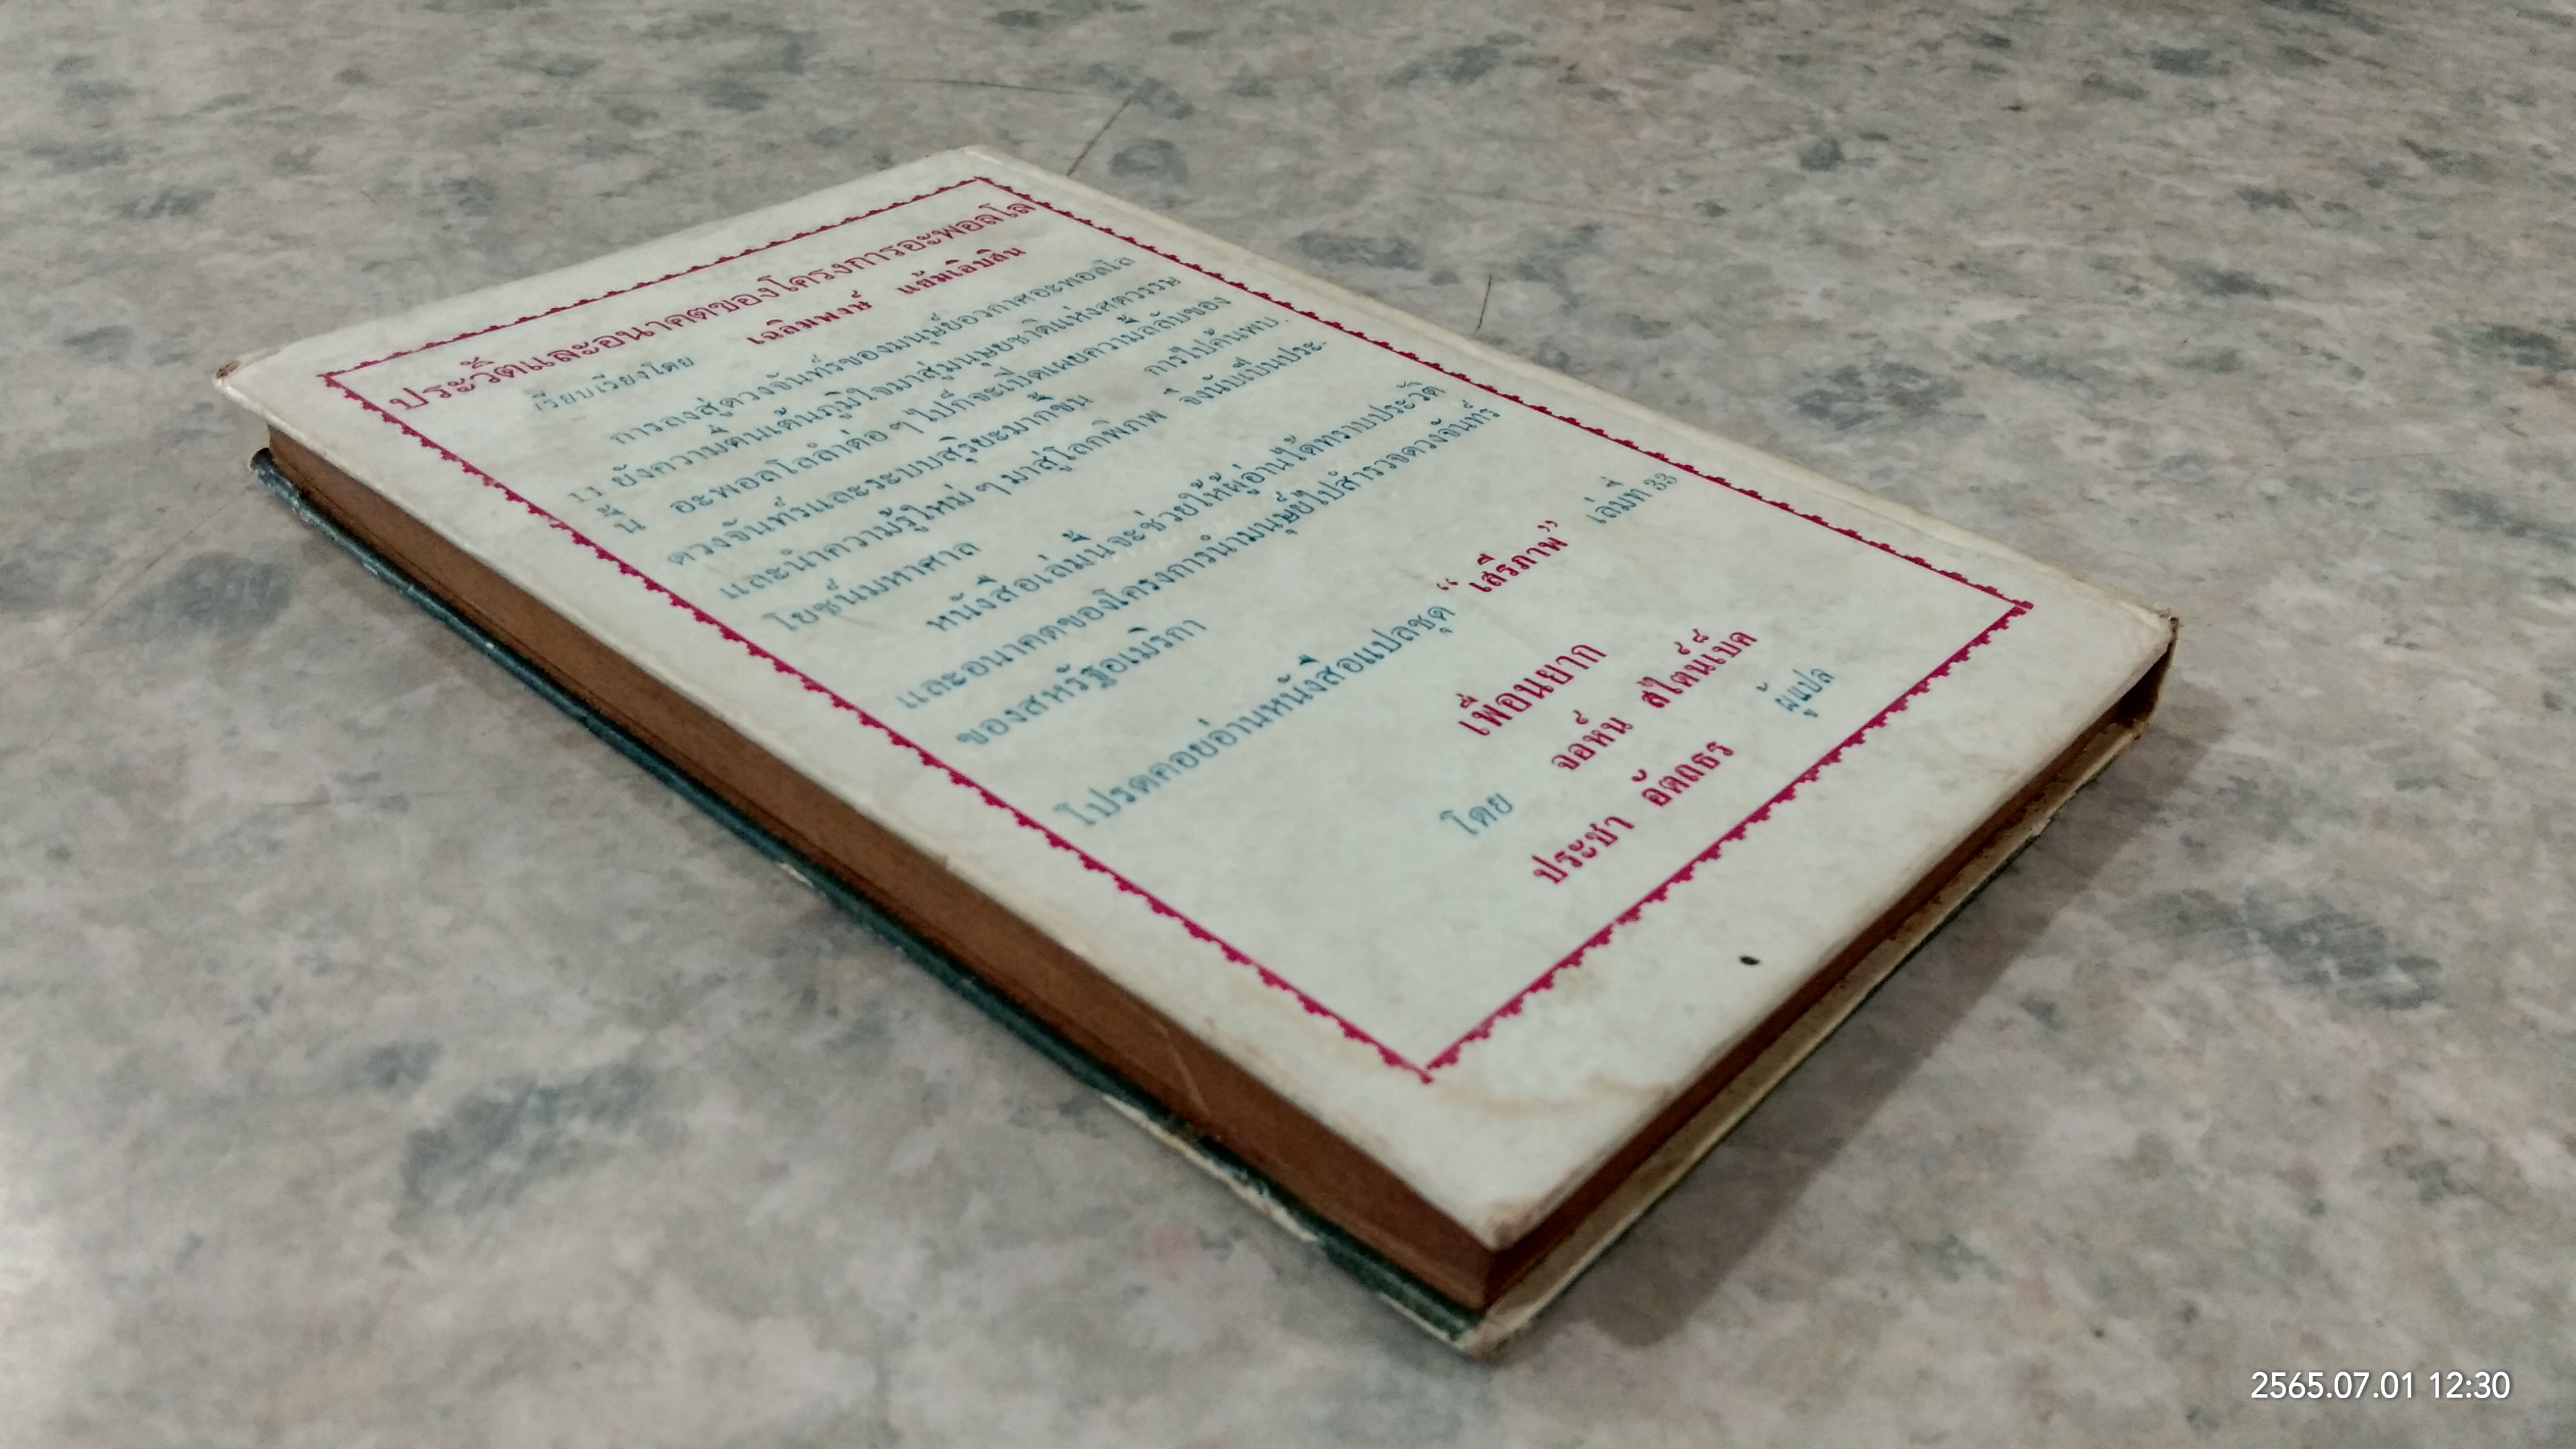 ประวัติและอนาคตของโครงการอะพอลโล
เรียบเรียงโดย เฉลิมพงษ์ แย้มเอิบสิน
การลงสู่ดวงจันทร์ของมนุษย์อวกาศอะพอลโล
11 ยังความตื่นเต้นภูมิใจมาสู่มนุษยชาติแห่งศตวรรษ
นี้ อะพอลโลลำต่อ ๆ ไปก็จะเปิดเผยความลี้ลับของ
ดวงจันทร์และระบบสุริยะมากขึ้น การไปค้นพบ
และนำความรู้ใหม่ ๆ มาสู่โลกพิภพ จึงนับเป็นประ-
โยชน์มหาศาล
หนังสือเล่มนี้จะช่วยให้ผู้อ่านได้ทราบประวัติ
และอนาคตของโครงการนำมนุษย์ไปสำรวจดวงจันทร์
ของสหรัฐอเมริกา
โปรดคอยอ่านหนังสือแปลชุด “เสรีภาพ” เล่มที่ 33
เพื่อนยาก
โดย จอห์น สไตน์เบ็ค
ประชา อัตถธร ผู้แปล
2565.07.01 12:30